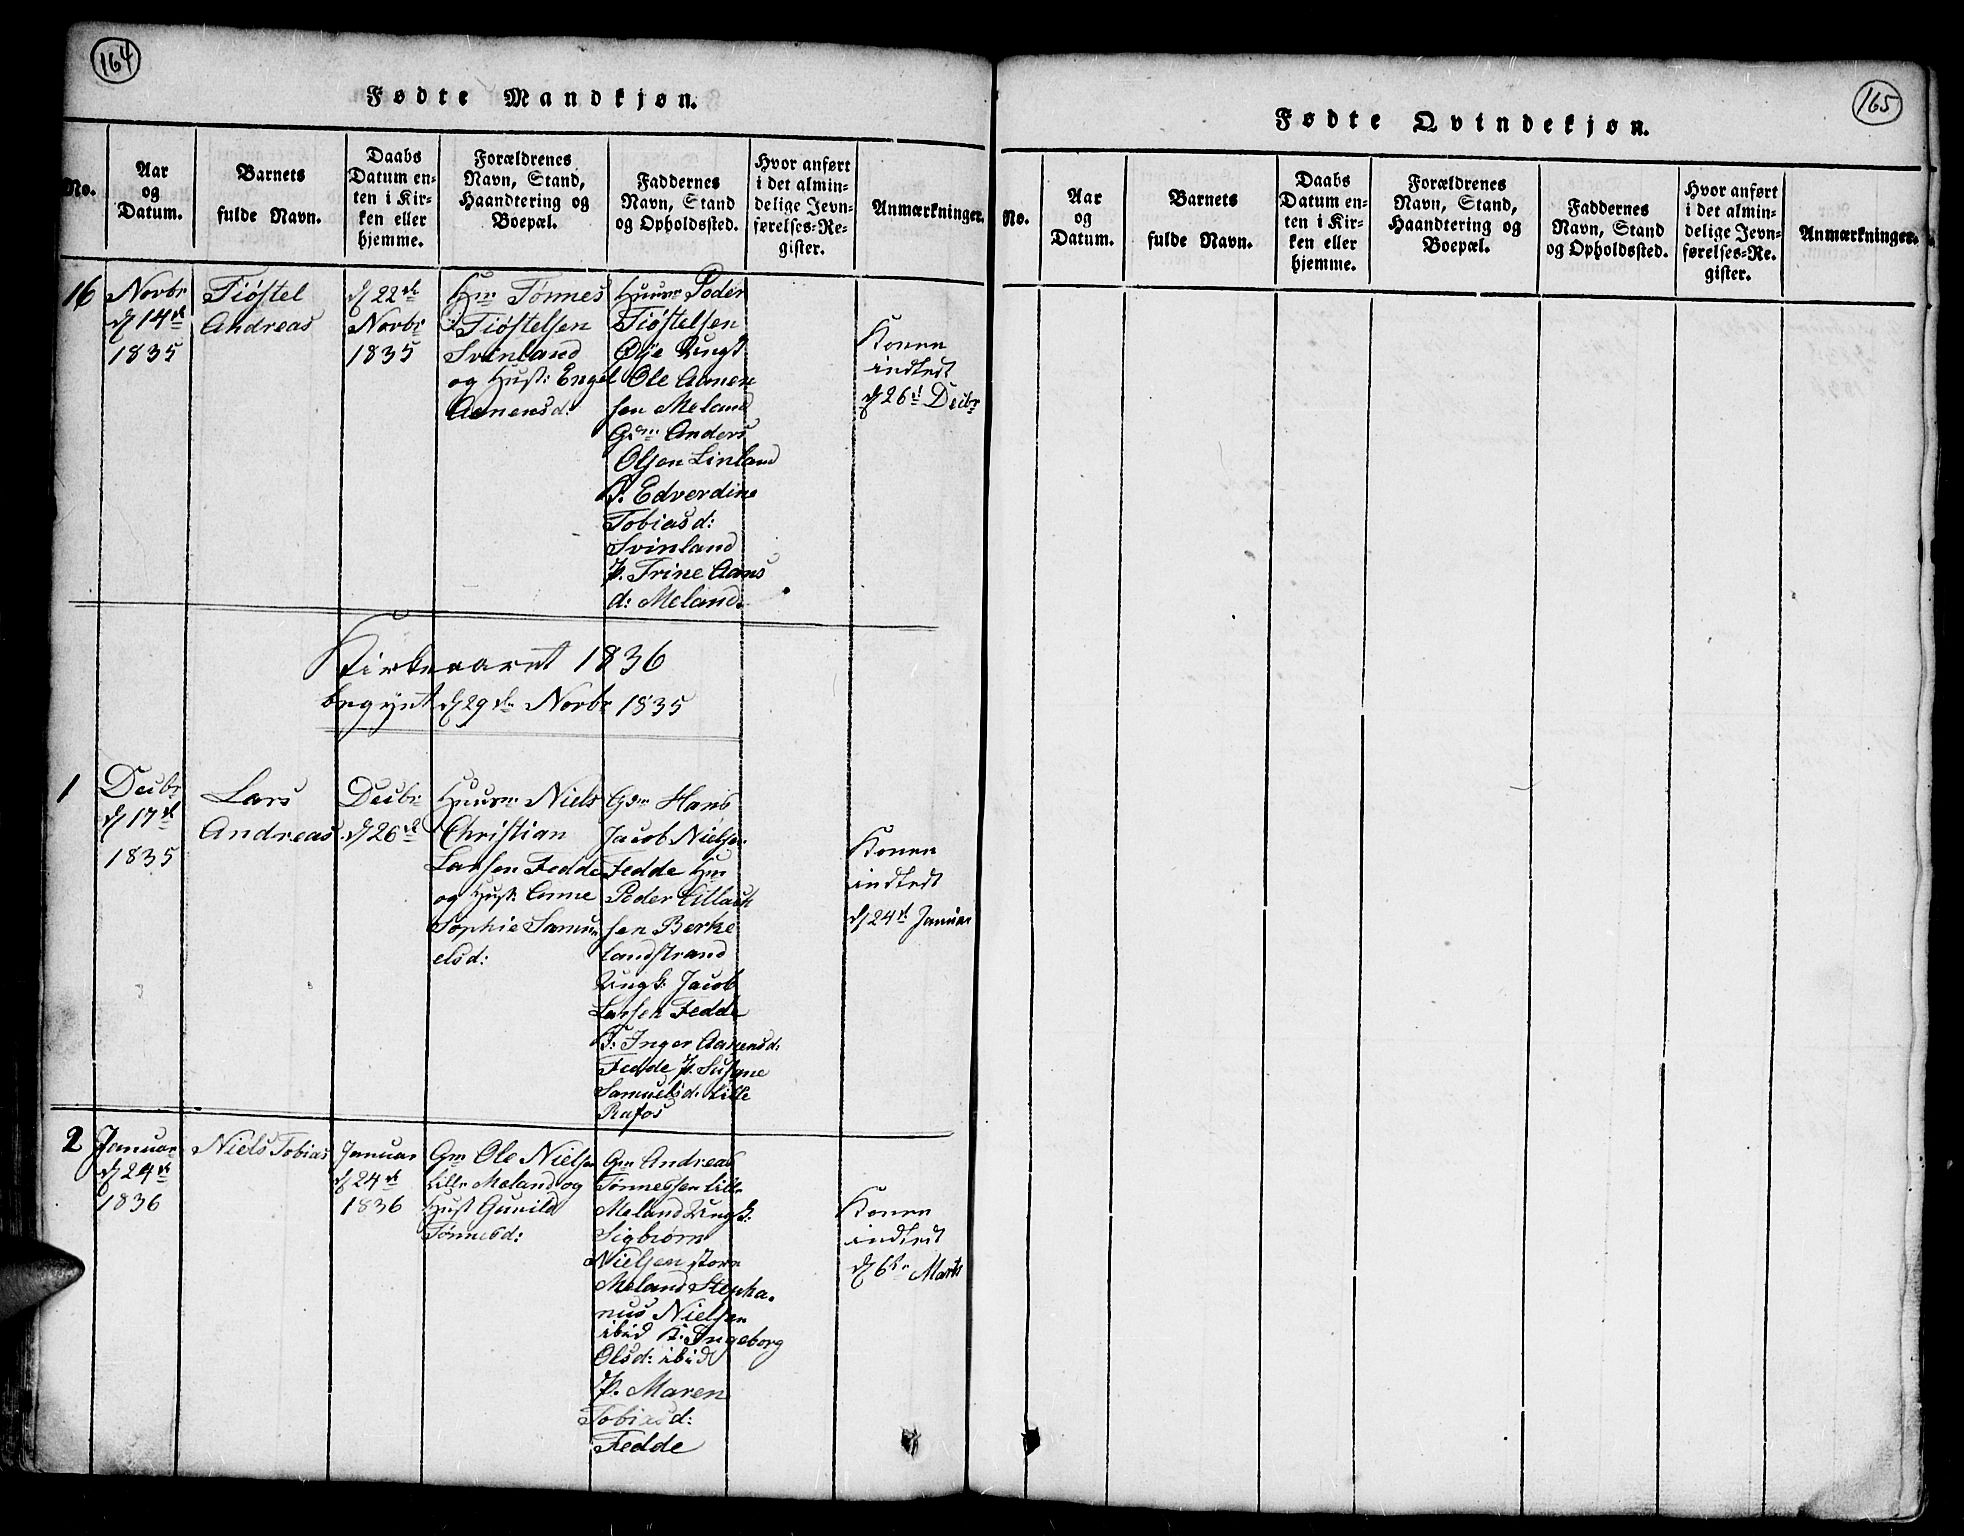 164
Fødte Mandkjøn.
No.
Aar
og
Datum.
Barnets
fulde Navn.
Daabs
Datum en-
ten i Kir-
ken eller
hjemme.
Forældrenes
Navn, Stand,
Haandtering og
Boepæl.
Faddernes
Navn, Stand
og Opholdssted.
Hvor anført
i det almin-
delige Jevn-
førelses-Re-
gister.
Anmærkninger.
16
Novbr
d 14de
1835
Tiøstel
Andreas
d 22de
Novbr
1835
Hm Tønnes
Tiøstelsen
Svinland
og Hust: Engel
Aanensd:
Huusm Peder
Tiøstelsen
Øye Ungk
Ole Aanen
sen Meland
Gm Anders
Olsen Linland
K. Edverdine
Tobiasd:
Svinland
P. Trine Aans
d: Meland
Konen
indledt
d 26d Decbr
Kirkeaaret 1836
begynt d 29de Novbr 1835
1
Decbr
d 17de
1835
Lars
Andreas
Decbr
d 26de
Huusm Niels
Christian
Larsen Fedde
og Hust: Anne
Sophie Samu
elsd:
Gdm Hans
Jacob Nielsen
Fedde Hm
Peder
sen Berke
landstrand
Ungk: Jacob
Larsen Fedde
K: Inger Aanensd:
Fedde P. Susane
Samuelsd: Lille
Rafos
Konen
indledt
d 24de Januar
2
Januar
d 24de
1836
Niels Tobias
Januar
d 24de
1836
Gm Ole Nielsen
Lille Meland og
Hust Gunild
Tønnesd:
Gm Andreas
Tønnessen Lille
Meland Ungk:
Sigbiørn
Nielsen store
Meland Stepha-
nus Nielsen
ibid K: Ingeborg
Olsd: ibid
P. Maren
Tobiasd:
Fedde
Konen
indledt
d 6te Marts
165
Fødte Qvindekjøn.
No.
Aar
og
Datum.
Barnets
fulde Navn.
Daabs
Datum en-
ten i Kir-
ken eller
hjemme.
Forældrenes
Navn, Stand,
Haandtering og
Boepæl.
Faddernes
Navn, Stand
og Opholdssted.
Hvor anført
i det almin-
delige Jevn-
førelses-Re-
gister.
Anmærkninger.